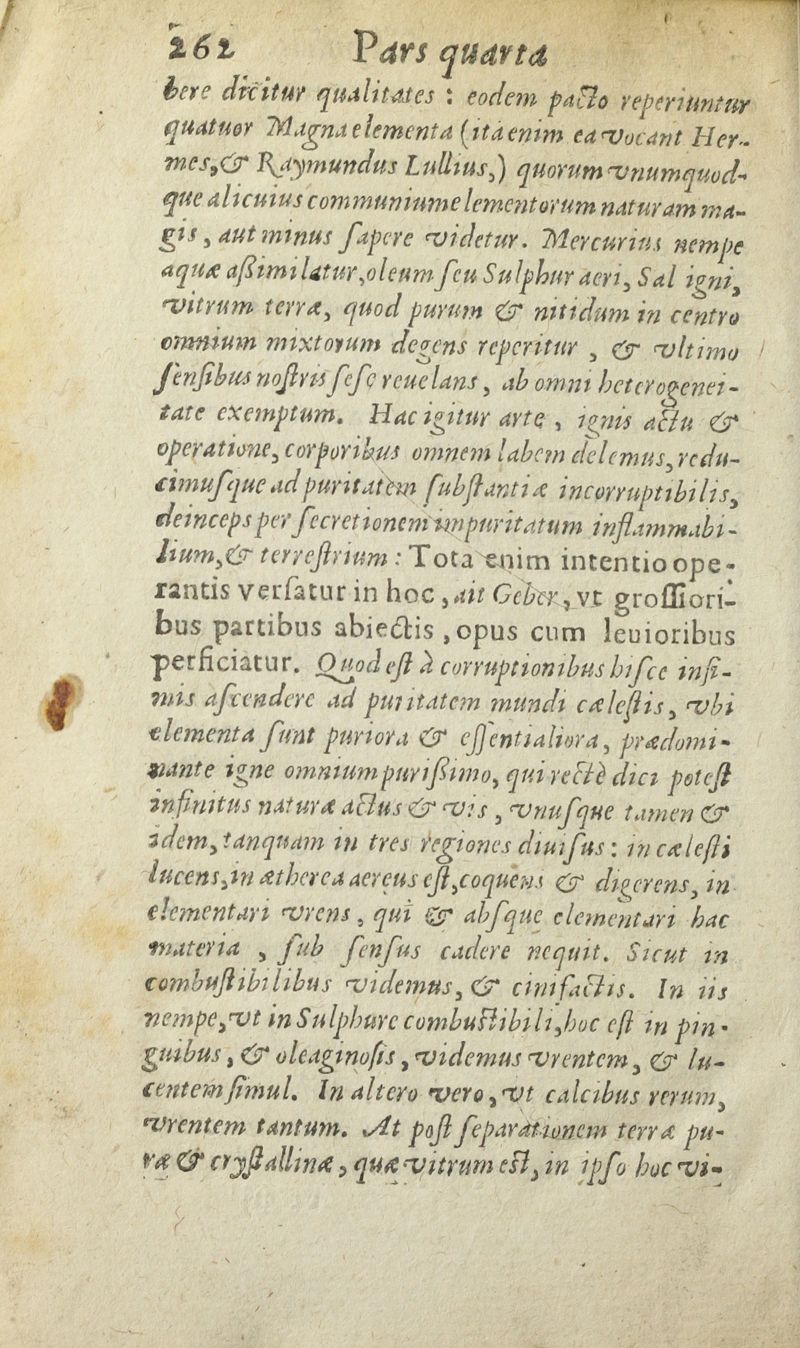 262 Pars quarta
bere dicitur qualitates : eodem pacto reperiuntur
quatuor Magna elementa (ita enim ea vocant Her-
mes, & Raymundus Lullius,) quorum vnumquod-
que alicuius communium elementorum naturam ma-
gis, aut minus sapere videtur. Mercurius nempe
aquæ aßimilatur, oleum seu Sulphur aeri, Sal igni,
vitrum terræ, quod purum & nitidum in centro
omnium mixtorum degens reperitur , & vltimo
sensibus nostris sese reuelans, ab omni heterogenei-
tate exemptum. Hac igitur arte , ignis actu &
operatione, corporibus omnem labem delemus, redu-
cimusque ad puritatem substantiæ incorruptibilis,
deinceps per secretionem impuritatum inflammabi-
lium, & terrestrium : Tota enim intentio ope-
rantis versatur in hoc, ait Geber, vt grossiori-
bus partibus abiectis , opus cum leuioribus
perficiatur. Quod est à corruptionibus hisce infi-
mis ascendere ad puritatem mundi cælestis, vbi
elementa sunt puriora & essentialiora, prædomi-
nante igne omnium purißimo, qui rectè dici potest
infinitus naturæ actus & vis , vnusque tamen &
idem, tanquam in tres regiones diuisus : in cælesti
lucens, in ætherea aereus est, coquens & digerens, in
elementari vrens , qui & absque elementari hac
materia , sub sensus cadere nequit. Sicut in
combustibilibus videmus, & cinifactis. In iis
nempe, vt in Sulphure combustibili, hoc est in pin-
guibus, & oleaginosis , videmus vrentem, & lu-
centem simul. In altero vero , vt calcibus rerum,
vrentem tantum. At post separationem terræ pu-
ræ & crystallinæ , quæ vitrum est, in ipso hoc vi-